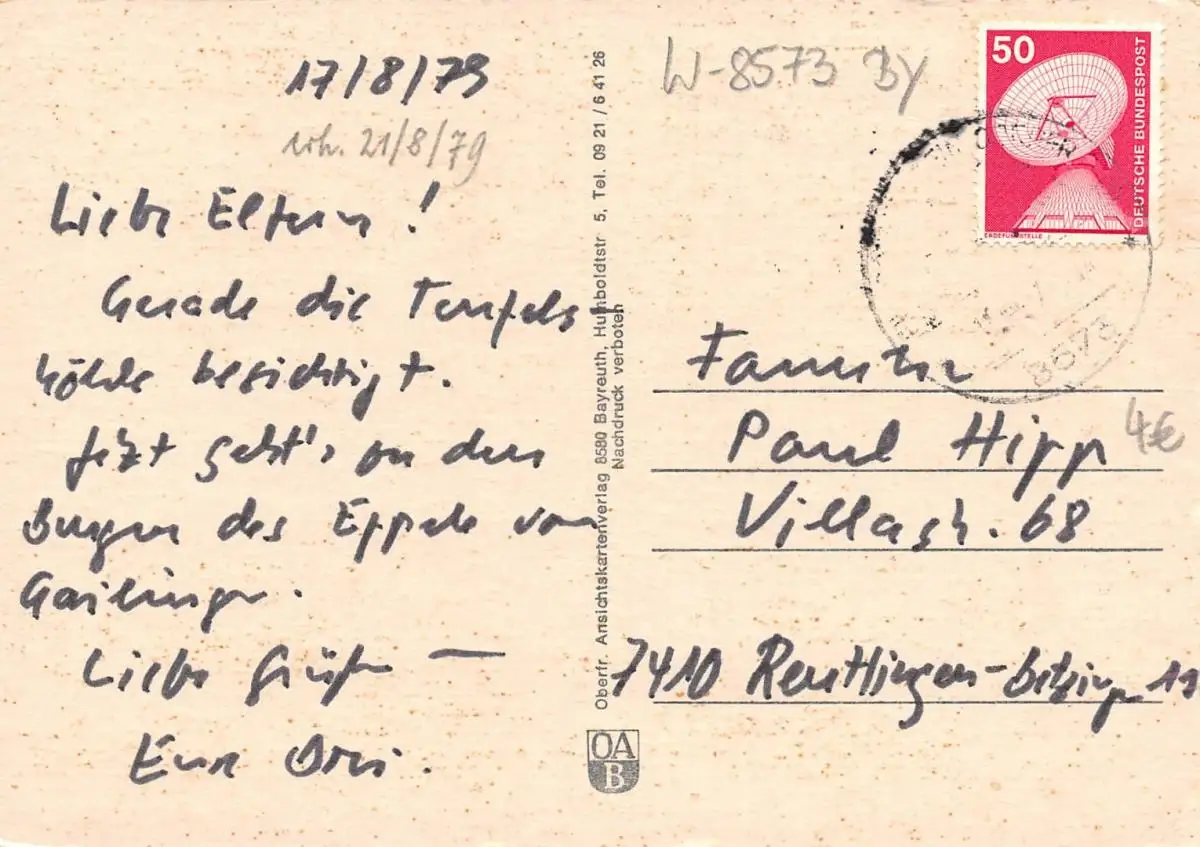 17/8/79
erh. 21/8/79
Liebe Eltern!
Gerade die Teufels-
höhle besichtigt.
Jetzt geht's zu den
Burgen des Eppele von
Gailingen.
Liebe Grüße —
Eure Doris.
Oberfr. Ansichtskartenverlag 8580 Bayreuth, Humboldtstr 5, Tel. 09 21 / 6 41 26
Nachdruck verboten
OA
B
W-8573 BY
50
DEUTSCHE BUNDESPOST
ERDEFUNKSTELLE
8573
Familie
Paul Hipp
4€
Villacher. 68
7410 Reutlingen-Betzingen 19